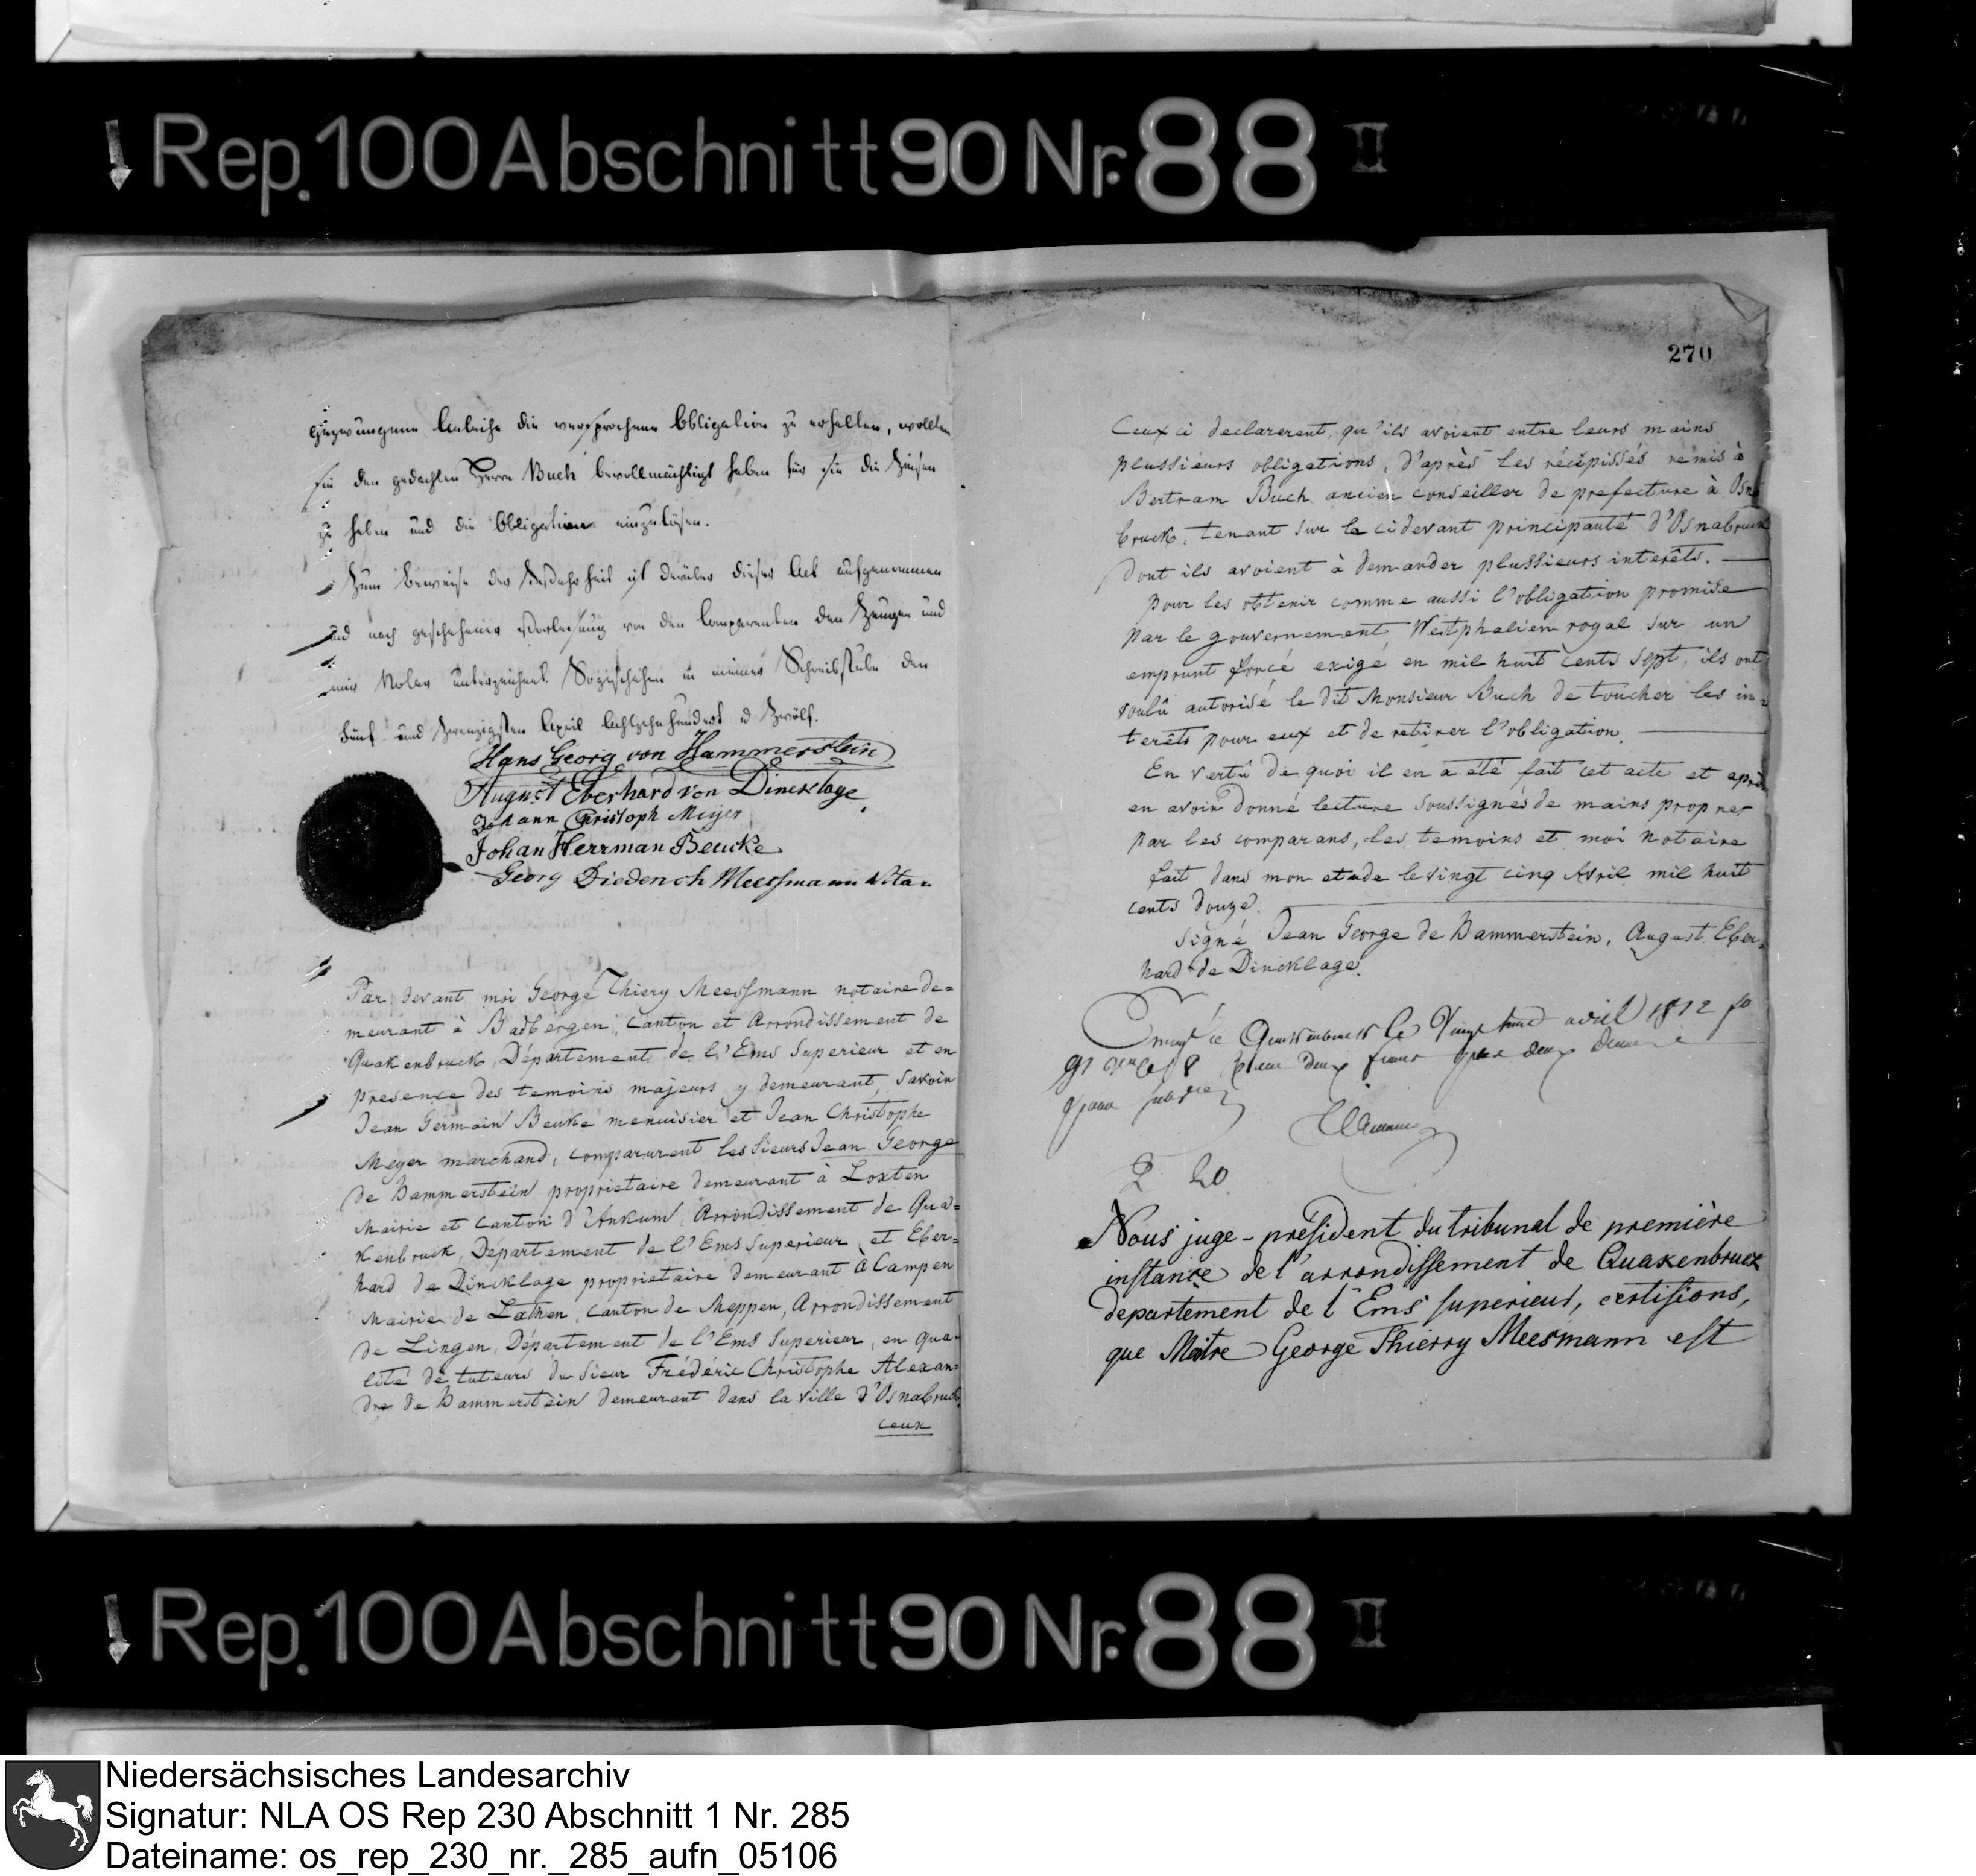 Rep. 100 Abschnitt 90 Nr. 88 II
gezwungenen Anleihe die versprochene Obligation zu erhalten, wollten
sie den gedachten Herrn Buch bevollmächtigt haben für sie die Zinsen
zu heben und die Obligation einzulösen.
Zum Beweise der Wahrheit ist darüber dieser Act aufgenommen
und nach geschehener Vorlesung von den Comparenten den Zeugen und
mir Notar unterzeichnet. So geschehen in meiner Schreibstube den
fünf und zwanzigsten April Achtzehnhundert Zwölf.
Hans Georg von Hammerstein
August Eberhard von Dincklage
Johann Christoph Meijer
Johan Herrman Beucke
Georg Diederich Meessmann Nota
Par devant moi George Thiery Meessmann notaire de=
meurant à Badbergen, Canton et Arrondissement de
Quakenbruck, Département de l'Ems Superieur et en
presence des temoins majeurs y demeurant, savoir
Jean Germain Beuke menuisier et Jean Christophe
Meyer marchand, comparurent les sieurs Jean George
de Hammerstein propriétaire demeurant à Loxten
Mairie et Canton d'Ankum, Arrondissement de Qua=
kenbruck, Département de l'Ems Superieur, et Eber=
hard de Dincklage propriétaire demeurant à Campen
Mairie de Lathen, Canton de Meppen, Arrondissement
de Lingen, Département de l'Ems Superieur, en qua=
lité de tuteurs du sieur Frédéric Christophe Alexan=
dre de Hammerstein demeurant dans la ville d'Osnabruck.
ceux
270
Ceux ci declarerent, qu'ils avoient entre leurs mains
plussieurs obligations, d'après les récépissés remis à
Bertram Buch ancien conseiller de prefecture à Osna
bruck, tenant sur le cidevant principauté d'Osnabruck
dont ils avoient à demander plussieurs interêts.
Pour les obtenir comme aussi l'obligation promise
par le gouvernement Westphalien royal sur un
emprunt forcé exigé en mil huit cents sept, ils ont
voulû autorisé le dit Monsieur Buch de toucher les in=
terêts pour eux et de retirer l'obligation.
En vertû de quoi il en a été fait cet acte et après
en avoir donné lecture soussignés de mains propres
par les comparans, les temoins et moi notaire
fait dans mon etude le vingt cinq Avril mil huit
cents douze.
Signé Jean George de Hammerstein, August Eber=
hard de Dincklage.
le Vingt avril 1812 fo
91 deux francs
2 20
Nous juge-président du tribunal de première
instance de l'arrondissement de Quakenbruck
departement de l'Ems superieur, certifions,
que Maitre George Thierry Meesmann est
Rep. 100 Abschnitt 90 Nr. 88 II
Niedersächsisches Landesarchiv
Signatur: NLA OS Rep 230 Abschnitt 1 Nr. 285
Dateiname: os_rep_230_nr._285_aufn_05106